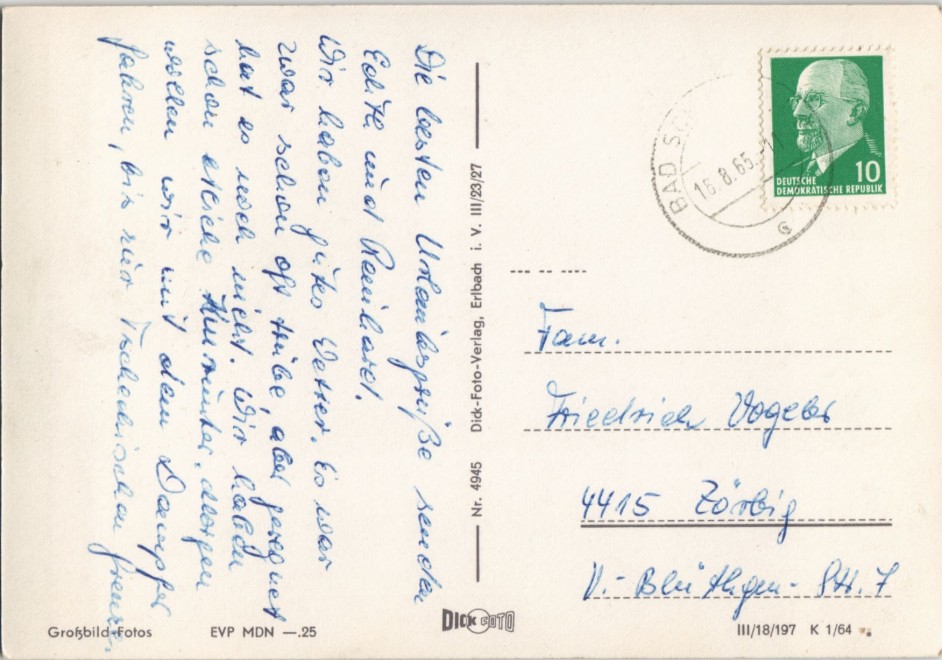 Die besten Urlaubsgrüße senden
Edith und Reinhard.
Wir haben gutes Wetter. Es war
zwar schon oft trübe, aber geregnet
hat es noch nicht. Wir haben
schon etliche km runter. Morgen
wollen wir mit dem Dampfer
fahren, bis zur Tschechischen Grenze.
Nr. 4945 Dick-Foto-Verlag, Erlbach i. V. III/23/27
BAD SC
16.8.65
G
10
DEUTSCHE
DEMOKRATISCHE REPUBLIK
Fam.
Friedrich Vogeler
4415 Zörbig
V.-Blüthgen-Str. 7
Großbild-Fotos EVP MDN —.25
DICK FOTO
III/18/197 K 1/64